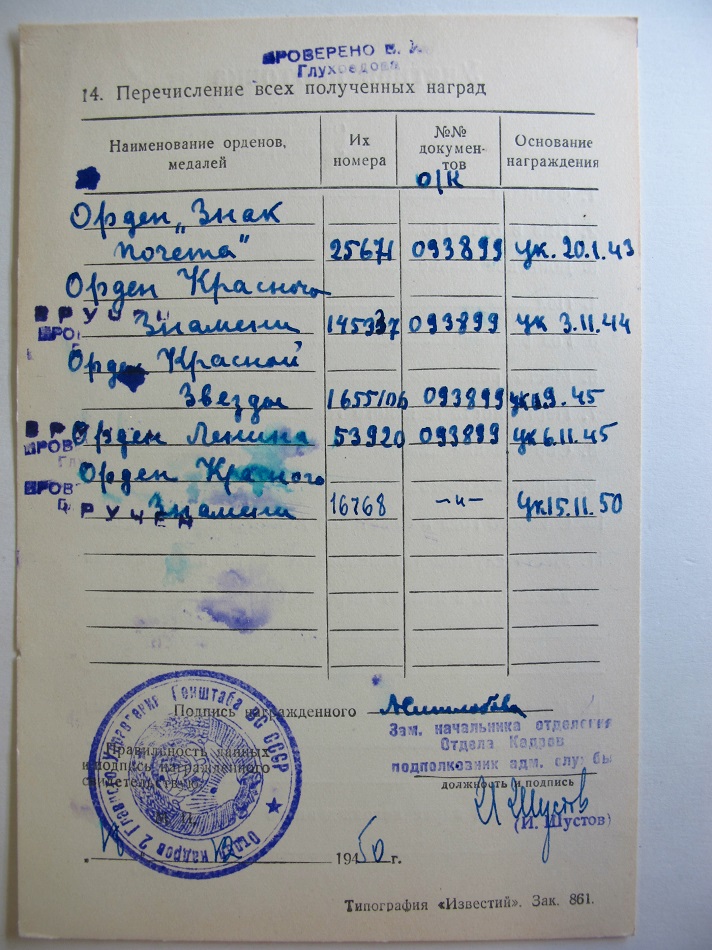 ПРОВЕРЕНО В.
Глухоедова
14. Перечисление всех полученных наград
Наименование орденов, медалей
Их номера
№№ документов
Основание награждения
о/к
Орден „Знак
почета" 25671 093899 ук. 20.1.43
Орден Красного
ВРУЧ
Знамени 145337 093899 ук 3.11.44
ПРО
Орден Красной
Звезды 1655106 093899 ук 19.45
ВР Орден Ленина 53920 093899 ук 6.11.45
ПРОВ
Орден Красного
ПРОВ
Знамени 16768 —"— Ук 15.11.50
РУЧЕН
Подпись награжденного
Зам. начальника отделения
Отдела Кадров
подполковник адм. службы
Правильность данных
и подпись награжденного
свидетельствую:
должность и подпись
И Шустов
(И. Шустов)
М. П.
Отдел кадров 2 Главного Управления Генштаба ВС СССР
12 1950 г.
Типография «Известий». Зак. 861.